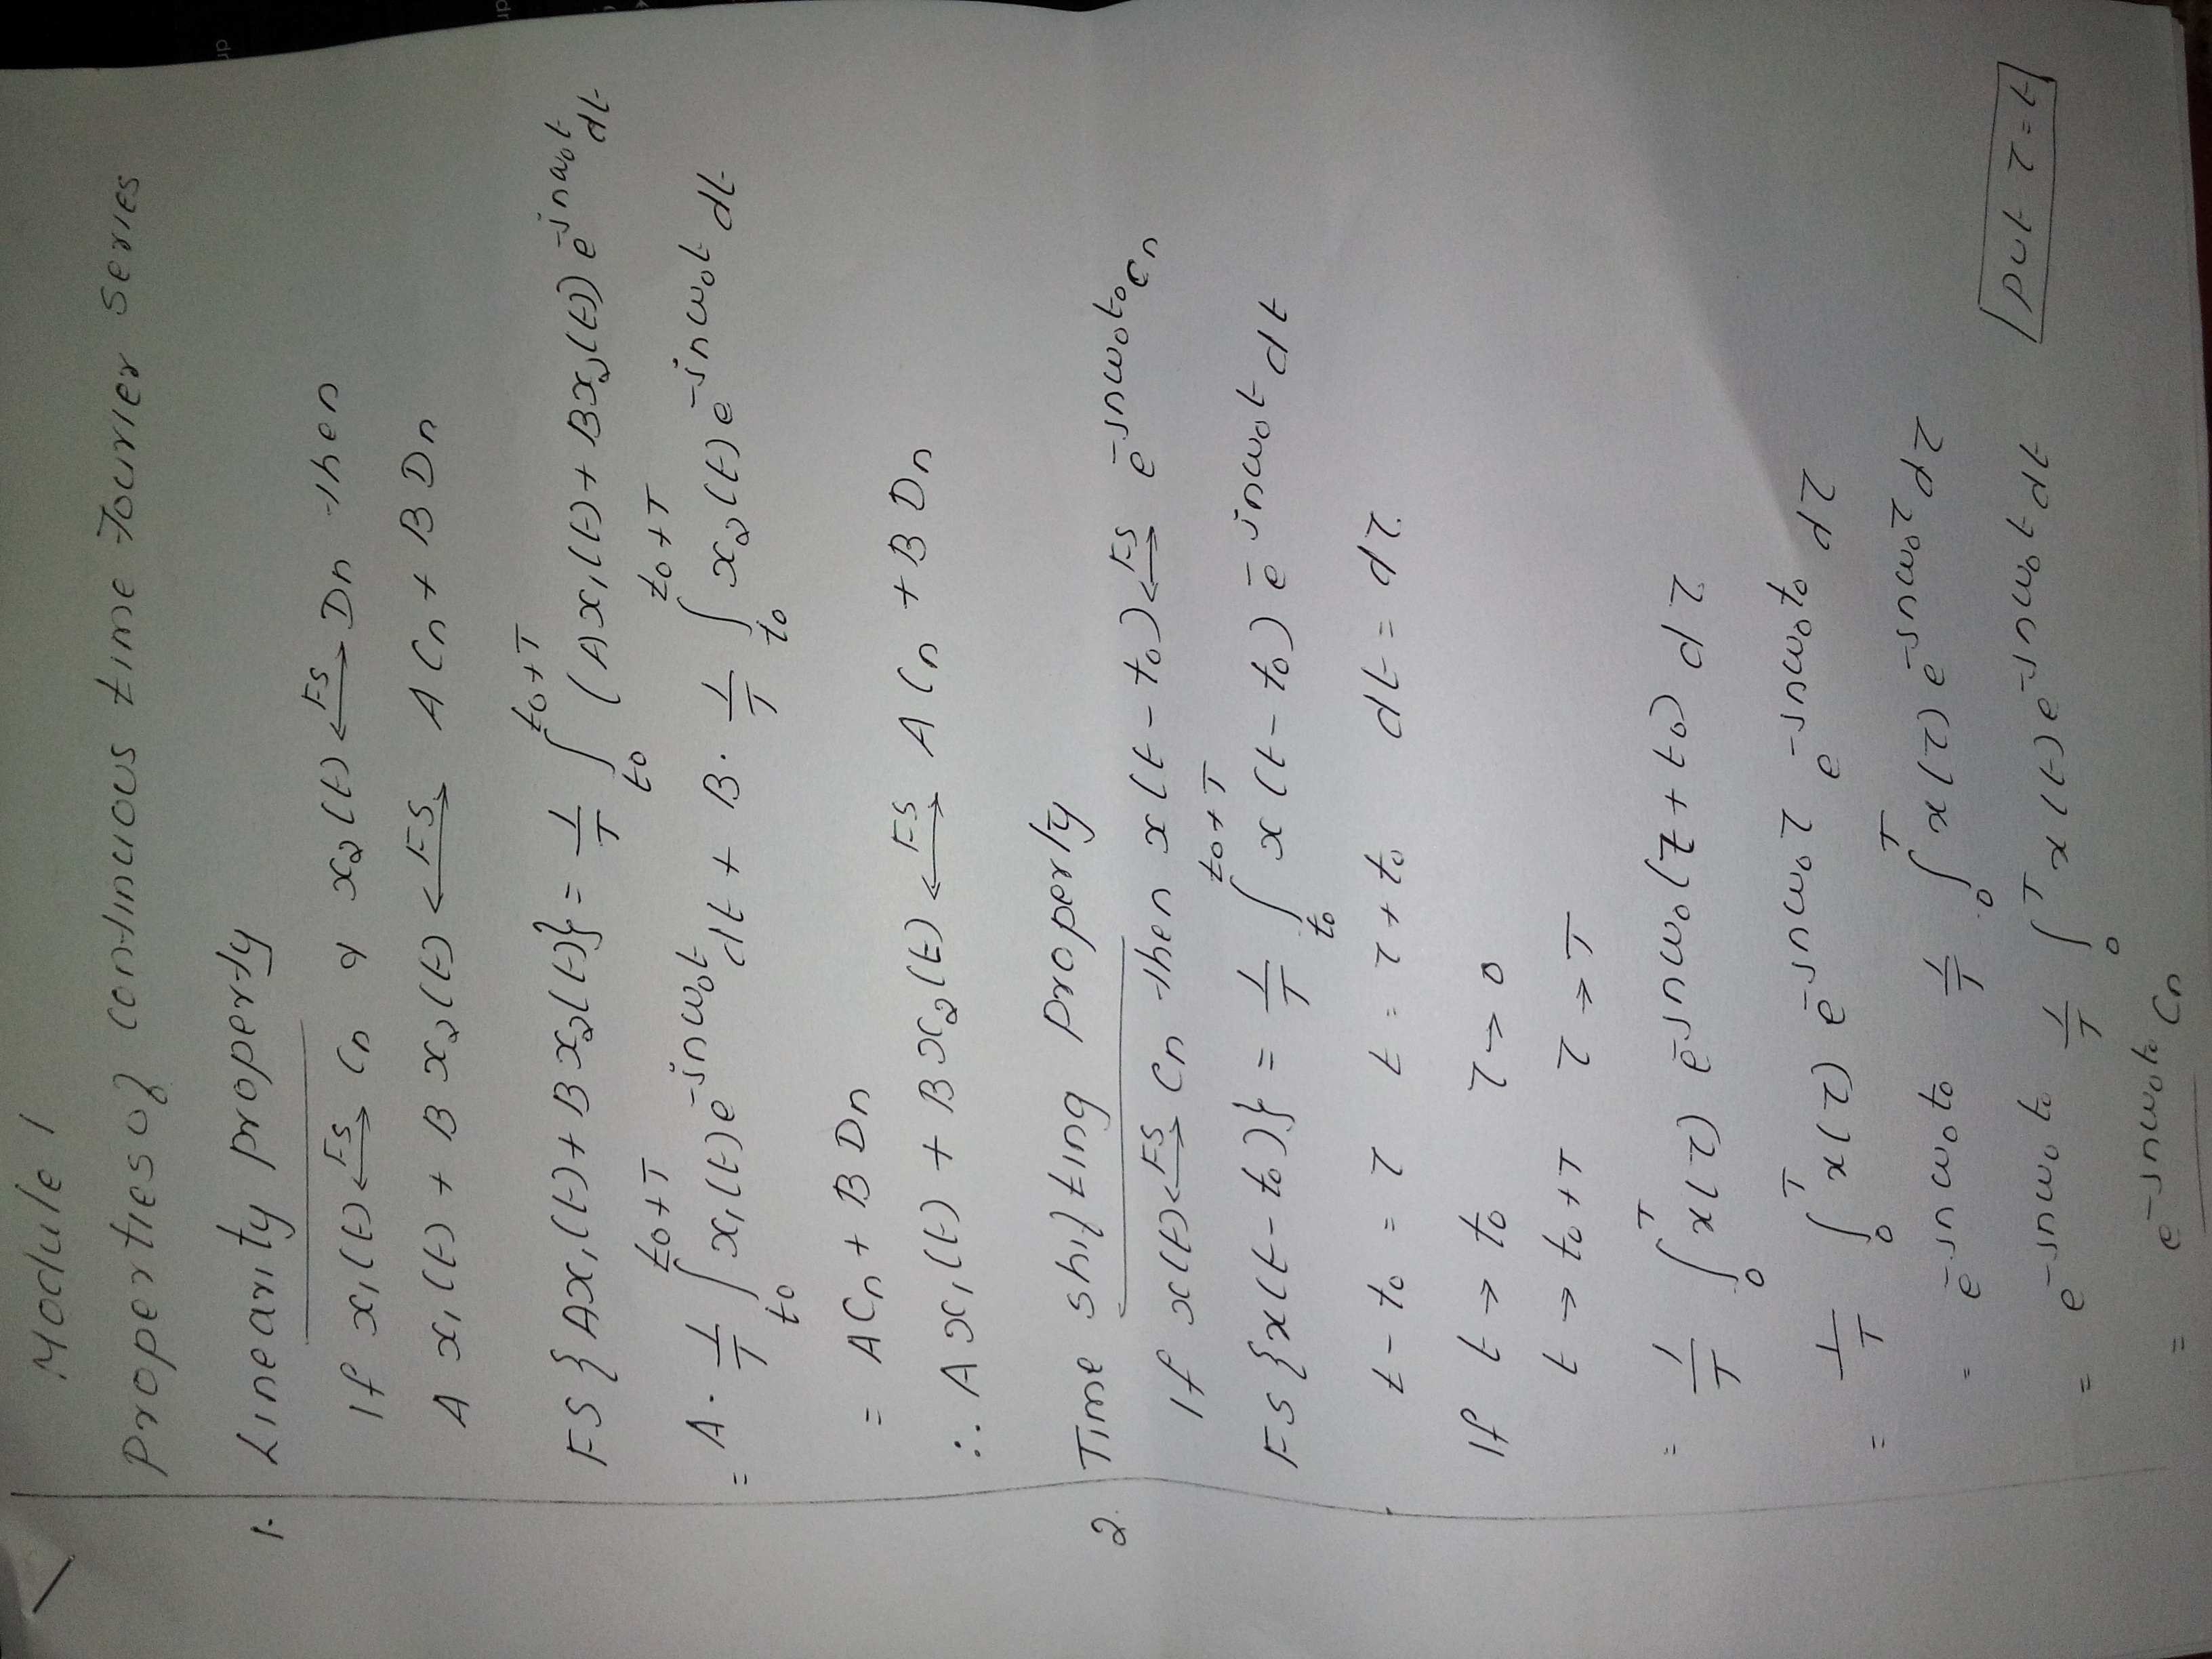 Module 1
Properties of continuous time Fourier series
1. Linearity property
If x₁(t) ←FS→ Cn & x₂(t) ←FS→ Dn then
A x₁(t) + B x₂(t) ←FS→ A Cn + B Dn
FS{Ax₁(t) + B x₂(t)} = 1/T ∫_{t₀}^{t₀+T} (A x₁(t) + B x₂(t)) e^{-jnω₀t} dt
= A. 1/T ∫_{t₀}^{t₀+T} x₁(t) e^{-jnω₀t} dt + B. 1/T ∫_{t₀}^{t₀+T} x₂(t) e^{-jnω₀t} dt
= A Cn + B Dn
∴ A x₁(t) + B x₂(t) ←FS→ A Cn + B Dn
2. Time shifting property
If x(t) ←FS→ Cn then x(t - t₀) ←FS→ e^{-jnω₀t₀} Cn
FS{x(t - t₀)} = 1/T ∫_{t₀}^{t₀+T} x(t - t₀) e^{-jnω₀t} dt
t - t₀ = τ t = τ + t₀ dt = dτ
If t → t₀ τ → 0
t → t₀ + T τ → T
= 1/T ∫_0^T x(τ) e^{-jnω₀(τ + t₀)} dτ
= 1/T ∫_0^T x(τ) e^{-jnω₀τ} e^{-jnω₀t₀} dτ
= e^{-jnω₀t₀} 1/T ∫_0^T x(τ) e^{-jnω₀τ} dτ
= e^{-jnω₀t₀} 1/T ∫_0^T x(t) e^{-jnω₀t} dt put τ = t
= e^{-jnω₀t₀} Cn